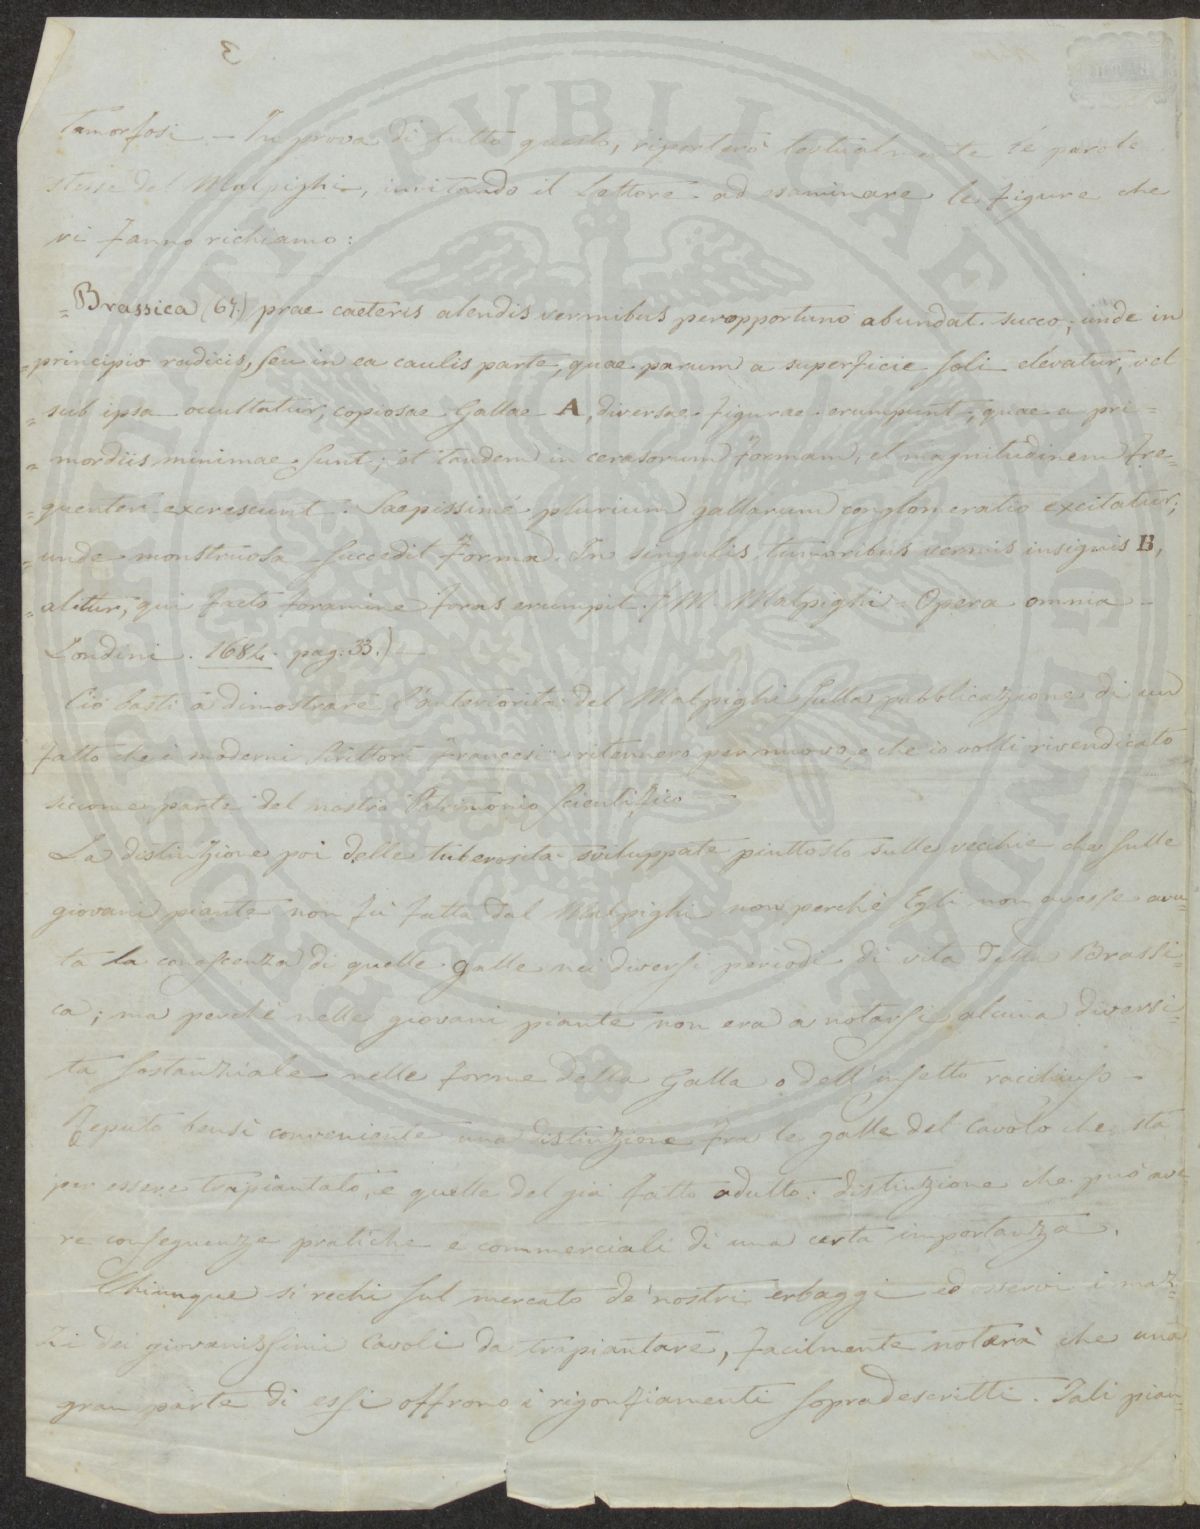 3
tamorfosi. — In prova di tutto questo, riporterò testualmente le parole
stesse del Malpighi, invitando il Lettore ad esaminare le figure che
vi fanno richiamo:
= Brassica (64.) prae caeteris alendis vermibus peropportuno abundat succo; unde in
= principio radicis, seu in ea caulis parte, quae parum a superficie soli elevatur, vel
= sub ipsa occultatur, copiosae Gallae A, diversae figurae erumpunt; quae a pri=
= mordiis minimae sunt; et tandem in cerasorum formam, et magnitudinem fre=
= quenter excrescunt. Saepissimè plurium gallarum conglomeratio excitatur;
= unde monstruosa succedit forma. In singulis tumoribus vermis insignis B,
= alitur, qui facto foramine foras erumpit. (M. Malpighi. Opera omnia —
Londini. 1684. pag. 33.) —
Ciò basti a dimostrare l'anteriorità del Malpighi sulla pubblicazione di un
fatto che i moderni scrittori francesi ritennero per nuovo, e che io volli rivendicato
siccome parte del nostro Patrimonio scientifico —
La distinzione poi delle tuberosità sviluppate piuttosto sulle vecchie che sulle
giovani piante non fù fatta dal Malpighi non perchè Egli non avesse avu=
ta la conoscenza di quelle galle nei diversi periodi di vita della Brassi=
ca; ma perchè nelle giovani piante non era a notarsi alcuna diversi=
tà sostanziale nelle forme della Galla o dell'insetto racchiuso —
Reputo bensì conveniente una distinzione fra le galle del Cavolo che sta
per essere trapiantato, e quelle del già fatto adulto: distinzione che può ave=
re conseguenze pratiche e commerciali di una certa importanza.
Chiunque si rechi sul mercato de' nostri erbaggi ed osservi i maz=
zi dei giovanissimi Cavoli da trapiantare, facilmente noterà che una
gran parte di essi offrono i rigonfiamenti sopradescritti. Tali pian=